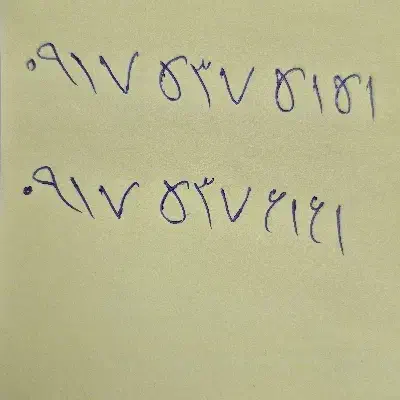 ۰۹۱۷ ۵۳۷ ۵۱۵۱
۰۹۱۷ ۵۳۷ ۶۱۶۱